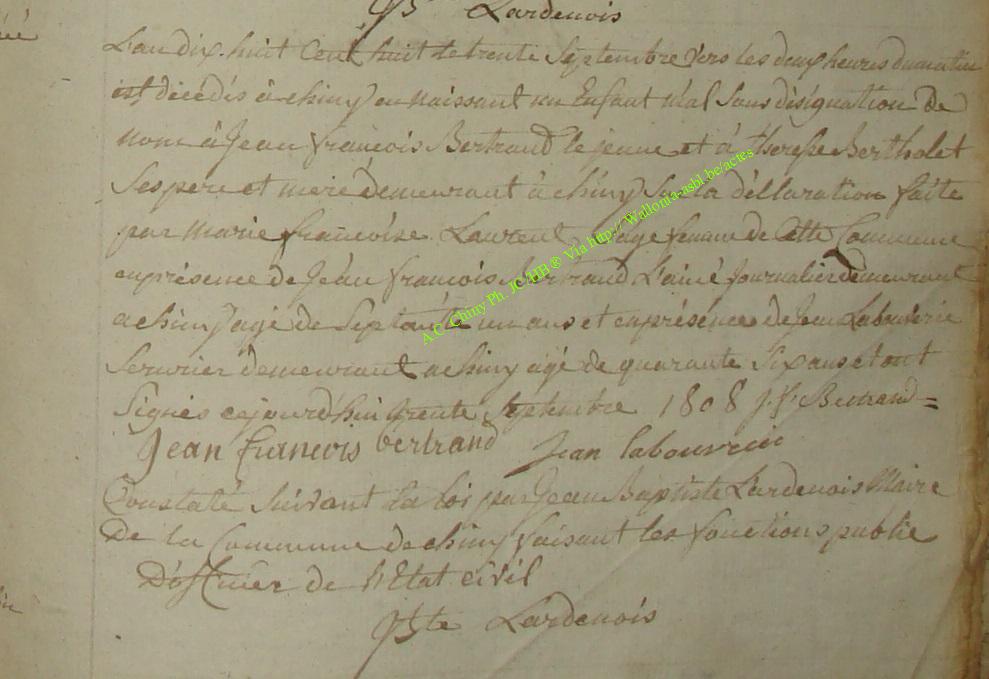 JB. Lardenois
L'an dix huit Cent huit le trente Septembre vers les deux heures du matin
est décédés à chiny en naissant un Enfant mâl Sans désignation de
nom à Jean françois Bertrand le jeune et à therese Bertholet
Ses pere et mere demeurant à chiny Sur la déllaration faite
par marie françoise Laurent Sage femme de Cette Commune
en présence de Jean françois Bertrand L'ainé Journalier demeurant
a chiny agé de Septante un ans et en présence de Jean Labouverie
Serurier demeurant a chiny agé de quarante Six ans et ont
Signés cejourd'hui trente Septembre 1808 J. f. Bertrand =
Jean francois bertrand Jean labouverie
Constaté Suivant la loi par Jean Baptiste Lardenois Maire
De la Commune de chiny faisant les fonctions public
D'officier de l'Etat civil
JBte Lardenois
A.C. Chiny Ph. JC HB ® Via http://Wallonia-asbl.be/actes